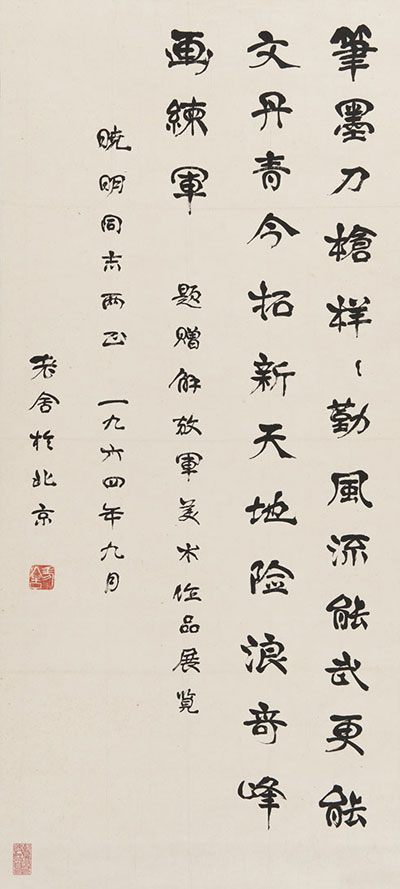 筆墨刀槍样〻勤風流能武更能
文丹青今拓新天地险浪奇峰
画練軍
題赠解放軍美术作品展覧
暁明同志両正 一九六四年九月
老舍於北京